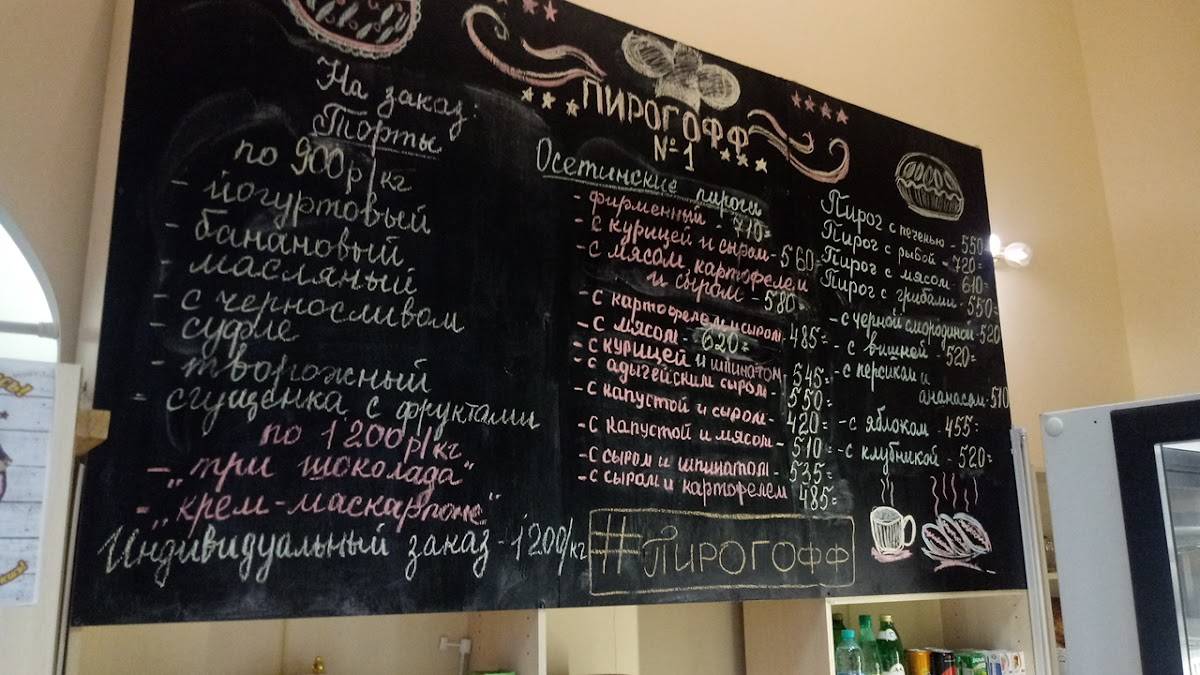 На заказ:
Торты
по 900р/кг
- йогуртовый
- банановый
- масляный
- с черносливом
- суфле
- творожный
- сгущенка с фруктами
по 1200р/кг
- „три шоколада"
- „крем-маскарпоне"
Индивидуальный заказ - 1200/кг
ПИРОГОФФ
№1
Осетинские пироги
- фирменный - 710=
- с курицей и сыром - 560=
- с мясом, картофелем
и сыром - 580=
- с картофелем и сыром - 485=
- с мясом - 620=
- с курицей и шпинатом - 545=
- с адыгейским сыром - 550=
- с капустой и сыром - 420=
- с капустой и мясом - 510=
- с сыром и шпинатом - 535=
- с сыром и картофелем 485=
Пирог с печенью - 550
Пирог с рыбой - 720=
Пирог с мясом - 610=
Пирог с грибами - 550=
- с черной смородиной - 520
- с вишней - 520=
- с персиком и
ананасом - 510
- с яблоком - 455=
- с клубникой - 520=
#ПИРОГОФФ